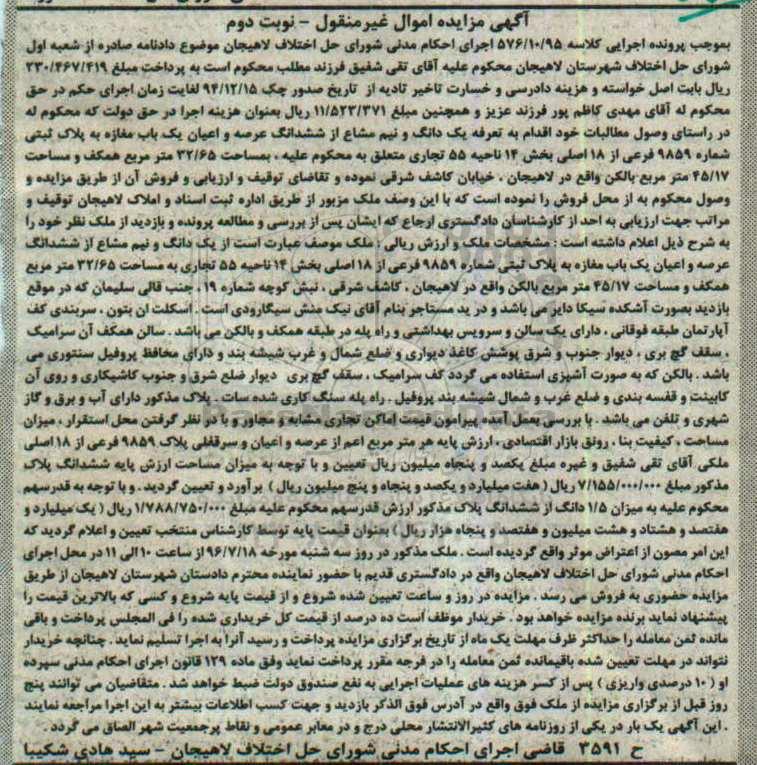 آگهی مزایده اموال غیرمنقول – نوبت دوم
بموجب پرونده اجرایی کلاسه ۵۷۶/۱۰/۹۵ اجرای احکام مدنی شورای حل اختلاف لاهیجان موضوع دادنامه صادره از شعبه اول
شورای حل اختلاف شهرستان لاهیجان محکوم علیه آقای تقی شفیق فرزند مطلب محکوم است به پرداخت مبلغ ۲۳۰/۴۶۷/۴۱۹
ریال بابت اصل خواسته و هزینه دادرسی و خسارت تاخیر تادیه از تاریخ صدور چک ۹۴/۱۲/۱۵ لغایت زمان اجرای حکم در حق
محکوم له آقای مهدی کاظم پور فرزند عزیز و همچنین مبلغ ۱۱/۵۲۳/۳۷۱ ریال بعنوان هزینه اجرا در حق دولت که محکوم له
در راستای وصول مطالبات خود اقدام به تعرفه یک دانگ و نیم مشاع از ششدانگ عرصه و اعیان یک باب مغازه به پلاک ثبتی
شماره ۹۸۵۹ فرعی از ۱۸ اصلی بخش ۱۴ ناحیه ۵۵ تجاری متعلق به محکوم علیه ، بمساحت ۳۲/۶۵ متر مربع همکف و مساحت
۴۵/۱۷ متر مربع بالکن واقع در لاهیجان ، خیابان کاشف شرقی نموده و تقاضای توقیف و ارزیابی و فروش آن از طریق مزایده و
وصول محکوم به از محل فروش را نموده است که با این وصف ملک مزبور از طریق اداره ثبت اسناد و املاک لاهیجان توقیف و
مراتب جهت ارزیابی به احد از کارشناسان دادگستری ارجاع که ایشان پس از بررسی و مطالعه پرونده و بازدید از ملک نظر خود را
به شرح ذیل اعلام داشته است : مشخصات ملک و ارزش ریالی : ملک موصف عبارت است از یک دانگ و نیم مشاع از ششدانگ
عرصه و اعیان یک باب مغازه به پلاک ثبتی شماره ۹۸۵۹ فرعی از ۱۸ اصلی بخش ۱۴ ناحیه ۵۵ تجاری به مساحت ۳۲/۶۵ متر مربع
همکف و مساحت ۴۵/۱۷ متر مربع بالکن واقع در لاهیجان ، کاشف شرقی ، نبش کوچه شماره ۱۹ ، جنب قالی سلیمان که در موقع
بازدید بصورت آشکده سیکا دایر می باشد و در ید مستاجر بنام آقای نیک منش سیگارودی است . اسکلت ان بتون ، سربندی کف
آپارتمان طبقه فوقانی ، دارای یک سالن و سرویس بهداشتی و راه پله در طبقه همکف و بالکن می باشد . سالن همکف آن سرامیک
، سقف گچ بری ، دیوار جنوب و شرق پوشش کاغذ دیواری و ضلع شمال و غرب شیشه بند و دارای محافظ پروفیل سنتوری می
باشد . بالکن که به صورت آشپزی استفاده می گردد کف سرامیک ، سقف گچ بری دیوار ضلع شرق و جنوب کاشیکاری و روی آن
کابینت و قفسه بندی و ضلع غرب و شمال شیشه بند پروفیل . راه پله سنگ کاری شده سات . پلاک مذکور دارای آب و برق و گاز
شهری و تلفن می باشد . با بررسی بعمل آمده پیرامون قیمت اماکن تجاری مشابه و مجاور و با در نظر گرفتن محل استقرار ، میزان
مساحت ، کیفیت بنا ، رونق بازار اقتصادی ، ارزش پایه هر متر مربع اعم از عرصه و اعیان و سرقفلی پلاک ۹۸۵۹ فرعی از ۱۸ اصلی
ملکی آقای تقی شفیق و غیره مبلغ یکصد و پنجاه میلیون ریال تعیین و با توجه به میزان مساحت ارزش پایه ششدانگ پلاک
مذکور مبلغ ۷/۱۵۵/۰۰۰/۰۰۰ ریال ( هفت میلیارد و یکصد و پنجاه و پنج میلیون ریال ) برآورد و تعیین گردید . و با توجه به قدرسهم
محکوم علیه به میزان ۱/۵ دانگ از ششدانگ پلاک مذکور ارزش قدرسهم محکوم علیه مبلغ ۱/۷۸۸/۷۵۰/۰۰۰ ریال ( یک میلیارد و
هفتصد و هشتاد و هشت میلیون و هفتصد و پنجاه هزار ریال ) بعنوان قیمت پایه توسط کارشناس منتخب تعیین و اعلام گردید که
این امر مصون از اعتراض موثر واقع گردیده است . ملک مذکور در روز سه شنبه مورخه ۹۶/۷/۱۸ از ساعت ۱۰ الی ۱۱ در محل اجرای
احکام مدنی شورای حل اختلاف لاهیجان واقع در دادگستری قدیم با حضور نماینده محترم دادستان شهرستان لاهیجان از طریق
مزایده حضوری به فروش می رسد . مزایده در روز و ساعت تعیین شده شروع و از قیمت پایه شروع و کسی که بالاترین قیمت را
پیشنهاد نماید برنده مزایده خواهد بود . خریدار موظف است ده درصد از قیمت کل خریداری شده را فی المجلس پرداخت و باقی
مانده ثمن معامله را حداکثر ظرف مهلت یک ماه از تاریخ برگزاری مزایده پرداخت و رسید آنرا به اجرا تسلیم نماید . چنانچه خریدار
نتواند در مهلت تعیین شده باقیمانده ثمن معامله را در فرجه مقرر پرداخت نماید وفق ماده ۱۲۹ قانون اجرای احکام مدنی سپرده
او ( ۱۰ درصدی واریزی ) پس از کسر هزینه های عملیات اجرایی به نفع صندوق دولت ضبط خواهد شد . متقاضیان می توانند پنج
روز قبل از برگزاری مزایده از ملک فوق واقع در آدرس فوق الذکر بازدید و جهت کسب اطلاعات بیشتر به این اجرا مراجعه نمایند
. این آگهی یک بار در یکی از روزنامه های کثیرالانتشار محلی درج و در معابر عمومی و نقاط پرجمعیت شهر الصاق می گردد .
ح ۳۵۹۱ قاضی اجرای احکام مدنی شورای حل اختلاف لاهیجان – سید هادی شکیبا